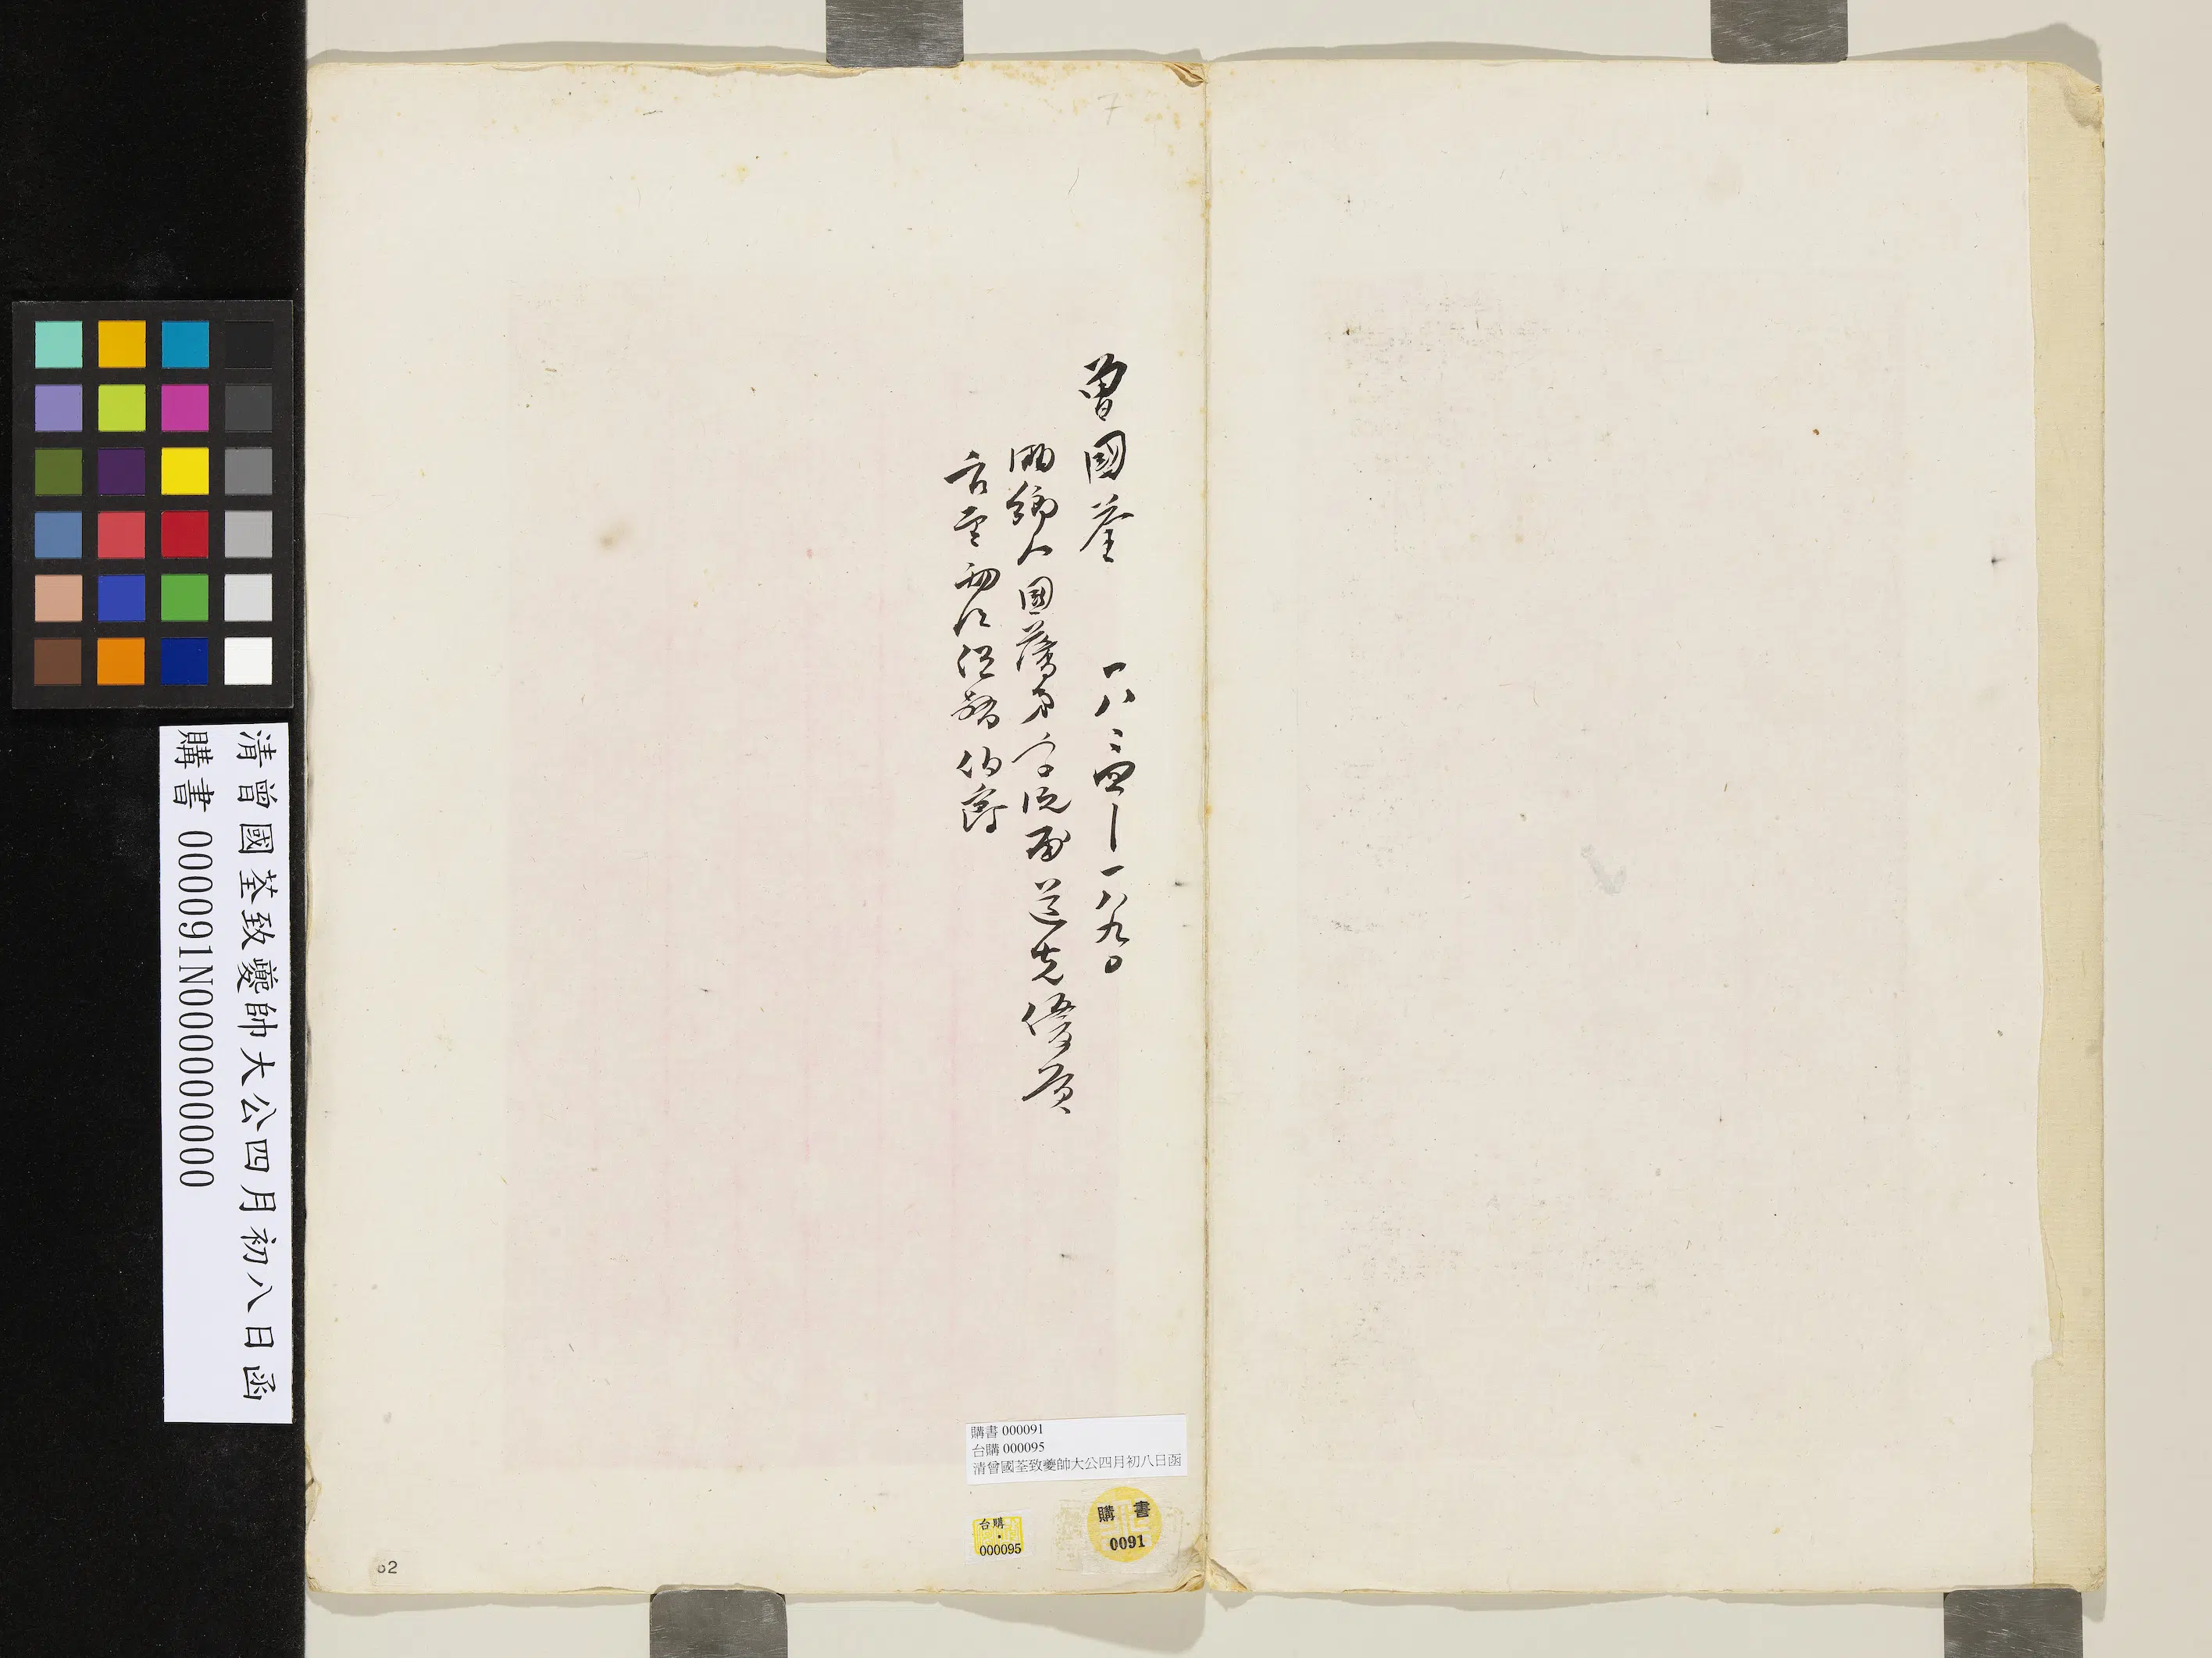 清曾國荃致夔帥大公四月初八日函
購書 000091N000000000
曾國荃 一八二四—一八九〇
湘鄉人國藩弟字沅甫道光優貢
官至兩江總督伯爵
購書 000091
台購 000095
清曾國荃致夔帥大公四月初八日函
台購
000095
購書
0091